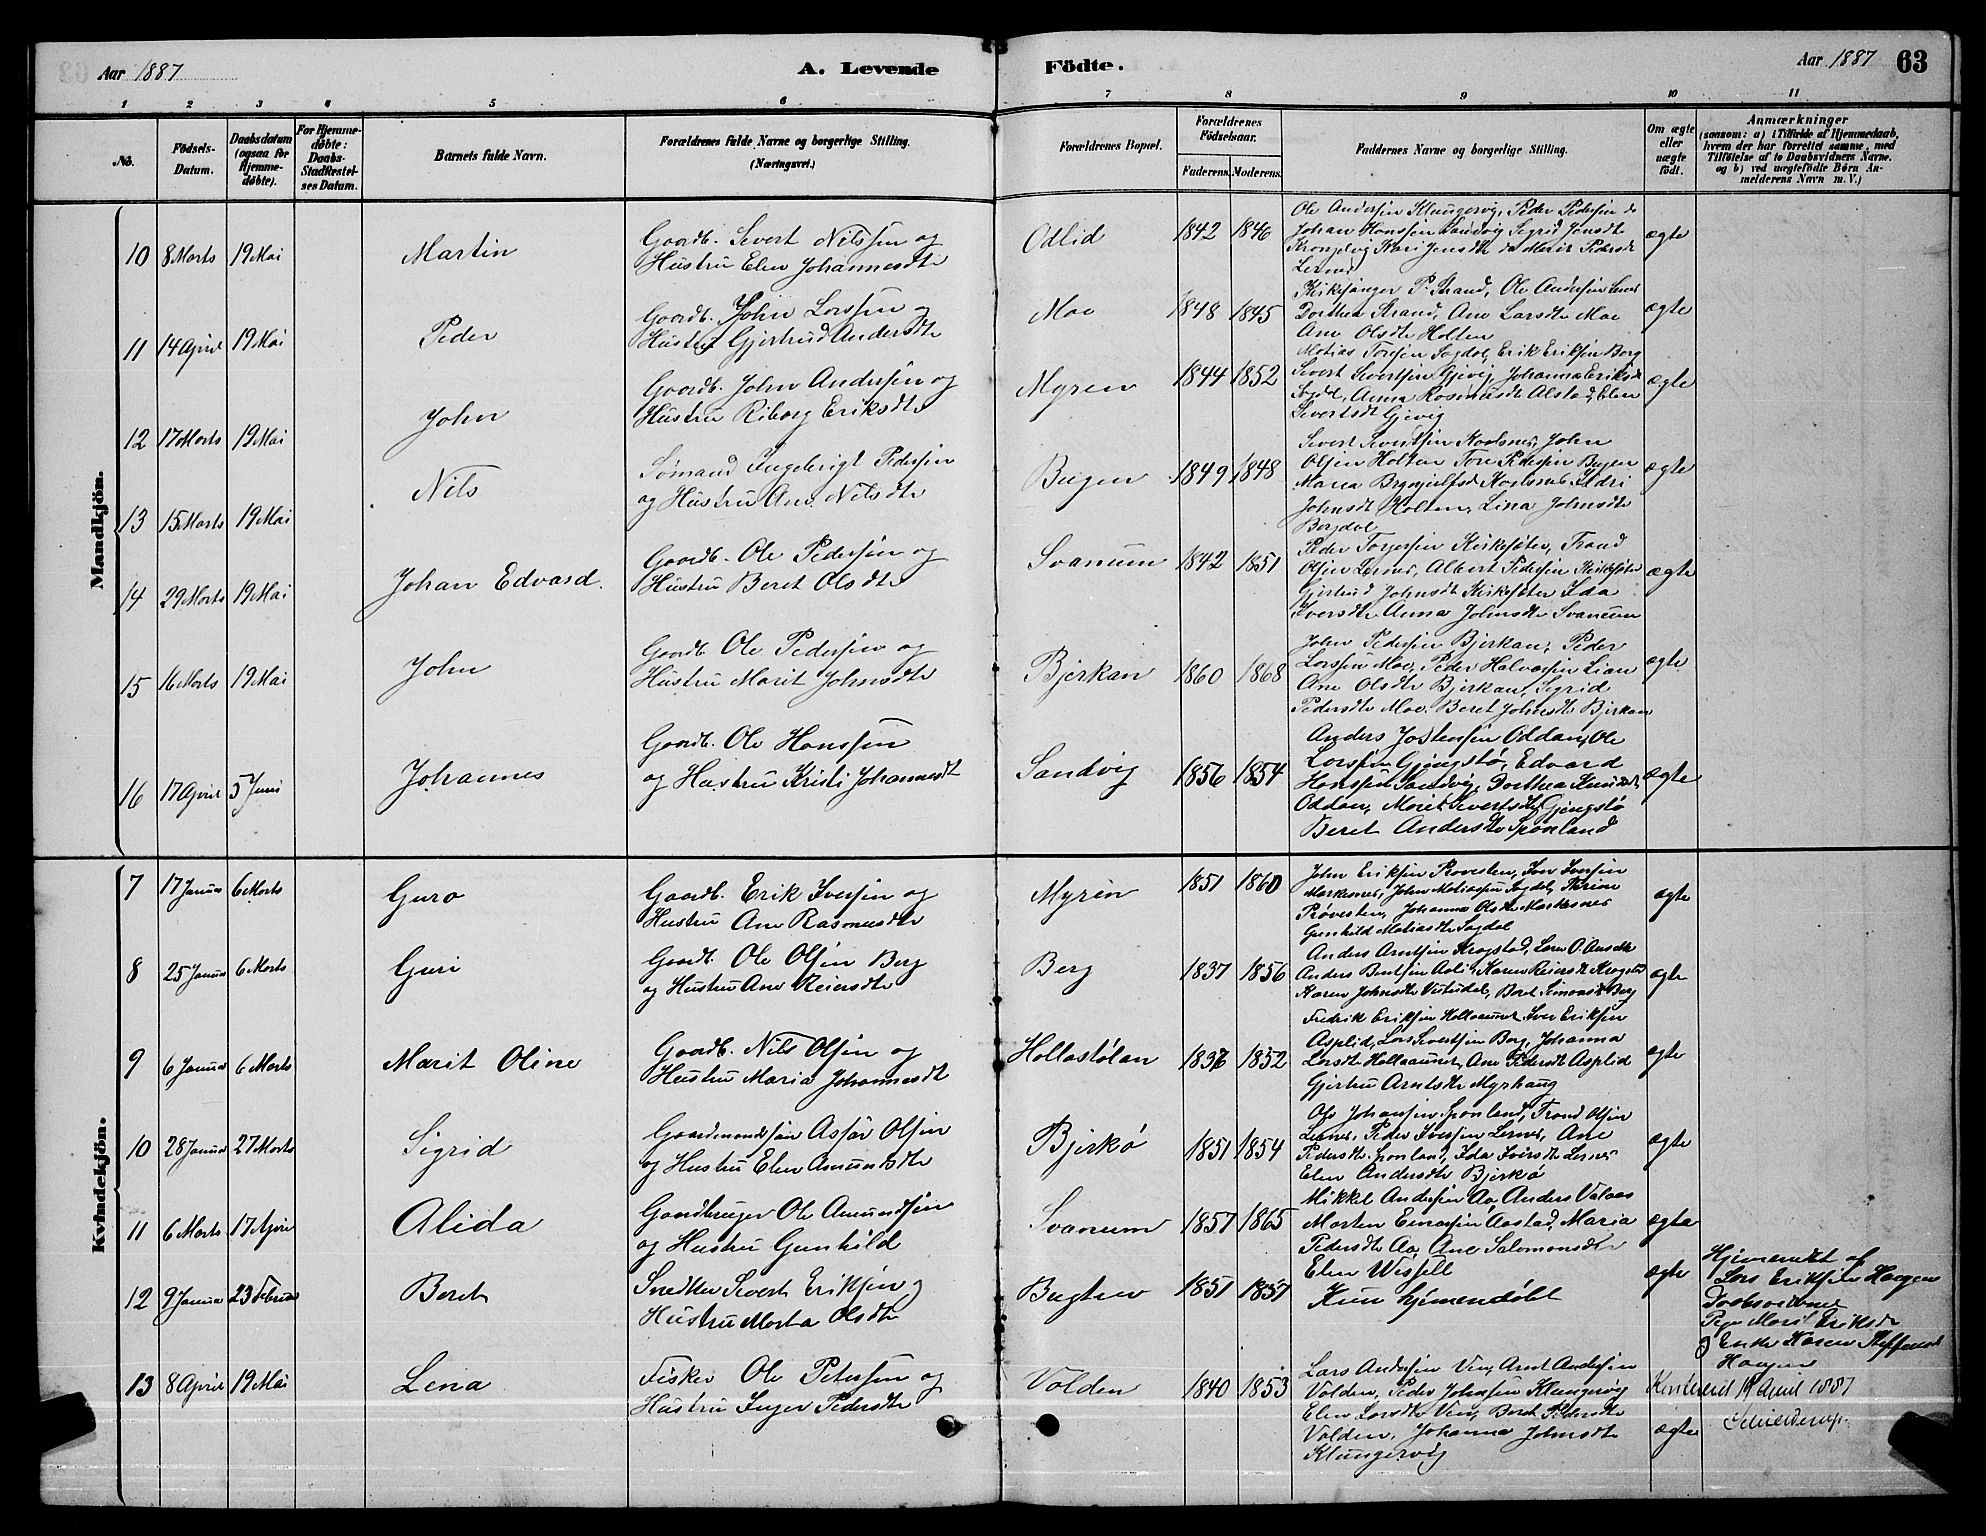 Aar 1887
A. Levende
Födte.
Aar 1887
63
1 2 3 4 5 6 7 8 9 10 11
No.
Födsels-Datum.
Daabsdatum (ogsaa for Hjemme-døbte).
For Hjemme-døbte: Daabs-Stadfestel-ses Datum.
Barnets fulde Navn.
Forældrenes fulde Navne og borgerlige Stilling.
(Næringsvei.)
Forældrenes Bopæl.
Forældrenes Födselsaar.
Faderens. Moderens.
Faddernes Navne og borgerlige Stilling.
Om ægte eller uægte födt.
Anmærkninger
(saasom: a) i Tilfælde af Hjemmedaab,
hvem der har forrettet samme, med
Tilföielse af to Daabsvidners Navne.
og b) ved uægtefödte Börn An-
melderens Navn m. V.)
Mandkjön.
10 8 Marts 19 Mai
Martin
Gaardb. Sivert Nilssen og
Hustru Elen Johannesdtr
Odlid
1842 1846
Ole Anderssen Klungervig, Peder Pederssen do
Johan Hanssen Sandvig Sigrid Jonsdt
Krongelvig Kari Jensdtr do Marit Pedersdt
Lernes
ægte
11 14 April 19 Mai
Peder
Gaardb. John Larssen og
Hustru Gjertrud Andersdtr
Moe
1848 1845
Kirkesanger P. Strand, Ole Anderssen Lernes
Dorthea Strand, Ane Larsdtr Moe
Ane Olsdtr Holten
ægte
12 17 Marts 19 Mai
John
Gaardb. John Anderssen og
Hustru Riborg Eriksdtr
Myren
1844 1852
Matias Toressen Sagdal, Erik Erikssen Berg
Sivert Sivertssen Gjevig, Johanna Eriksdt
Sagdal, Anna Rasmusdtr Alstad, Elen
Sivertsdt Gjevig
ægte
13 15 Marts 19 Mai
Nils
Sømand Ingebrigt Pederssen
og Hustru Ane Nilsdtr
Bugen
1849 1848
Sivert Sivertssen Koalsnes, John
Olssen Holten Tore Pederssen Bugen
Maria Koalsnes Ildri
Johnsdt Holten, Lina Johnsdtr
Bergdal
ægte
14 29 Marts 19 Mai
Johan Edvard.
Gaardb. Ole Pederssen og
Hustru Beret Olsdtr
Svanum
1842 1851
Peder Torgerssen Kirkesæter, Trond
Olssen Lernes, Albert Pederssen Kirkesæter
Gjertrud Johnsdt Kirkesæter Ida
Iversdtr Anna Johnsdtr Svanum
ægte
15 16 Marts 19 Mai
John
Gaardb. Ole Pederssen og
Hustru Marit Johnsdtr
Bjerkan
1860 1868
John Pederssen Bjerkan, Peder
Larssen Moe, Peder Halvorssen Lian
Ane Olsdtr Bjerkan, Sigrid
Pedersdtr Moe, Beret Johnsdtr Bjerkan
ægte
16 17 April 5 Juni
Johannes
Gaardb. Ole Hanssen
og Hustru Kristi Johannesdt
Sandvig
1856 1854
Anders Jostenssen Oddan, Ole
Larssen Gjengstø, Edvard
Hanssen Sandvig, Dorthea Knudsdt
Oddan, Marit Sivertsdtr Gjengstø
Beret Andersdtr Sponland
ægte
Kvindekjön.
7 17 Januar 6 Marts
Guro
Gaardb. Erik Iverssen og
Hustru Ane Rasmusdtr
Myren
1851 1860
John Erikssen Røvesten, Iver Iverssen
Markesnes, John Matiassen Sagdal,
Prøvesten, Johanna Olsdtr Markesnes
Gunhild Matiasdtr Sagdal
ægte
8 25 Januar 6 Marts
Guri
Gaardb. Ole Olssen Berg
og Hustru Ane Reiersdtr
Berg
1837 1856
Anders Arntssen Krogstad,
Anders Berntssen Karen Reiersdt Krogstad
Karen Johnsdtr Vistedal, Beret Simonsdt Berg
ægte
9 6 Januar 6 Marts
Marit Oline
Gaardb. Nils Olssen og
Hustru Maria Johannesdt
Hollastølan
1836 1852
Fredrik Erikssen Hollaaunet Iver Erikssen
Asplid, Lars Sivertssen Berg, Johanna
Larsdt Hollaaunet, Ane Pedersdt Asplid
Gjertru Arntsdtr Myrhaug
ægte
10 28 Januar 27 Marts
Sigrid
Gaardmandssøn Assar Olssen
og Hustru Elen Amundsdtr
Bjerkø
1851 1854
Ole Johanssen Sponland, Trond Olssen
Lernes, Peder Iverssen Lernes, Ane
Pedersdtr Sponland, Ida Iversdtr Lernes
Elen Andersdtr Bjerkø
ægte
11 6 Marts 17 April
Alida
Gaardbruger Ole Amundssen
og Hustru Gunhild
Svanum
1857 1865
Mikkel Anderssen Aa, Anders Valaas
Morten Einarssen Aastad, Maria
Pedersdtr Aa, Ane Salomonsdtr
Elen Wessell
ægte
12 9 Januar 23 Februar
Beret
Snedker Sivert Erikssen og
Hustru Marta Olsdtr
Bugten
1851 1857
Kun hjemmedøbt
ægte
Hjemmedt af
Lars Erikssen Haugen
Daabsvidner
Pige Marit Eriksdtr
og Enke Karen Steffensdt
Haugen
13 8 April 19 Mai
Lena
Fisker Ole Peterssen og
Hustru Inger Pedersdtr
Volden
1840 1853
Lars Anderssen Ven, Arnt Anderssen
Volden, Peder Johnssen Klungervig
Elen Larsdtr Ven, Beret Pedersdtr
Volden, Johanna Johnsdtr
Klungervig
ægte
April 1887